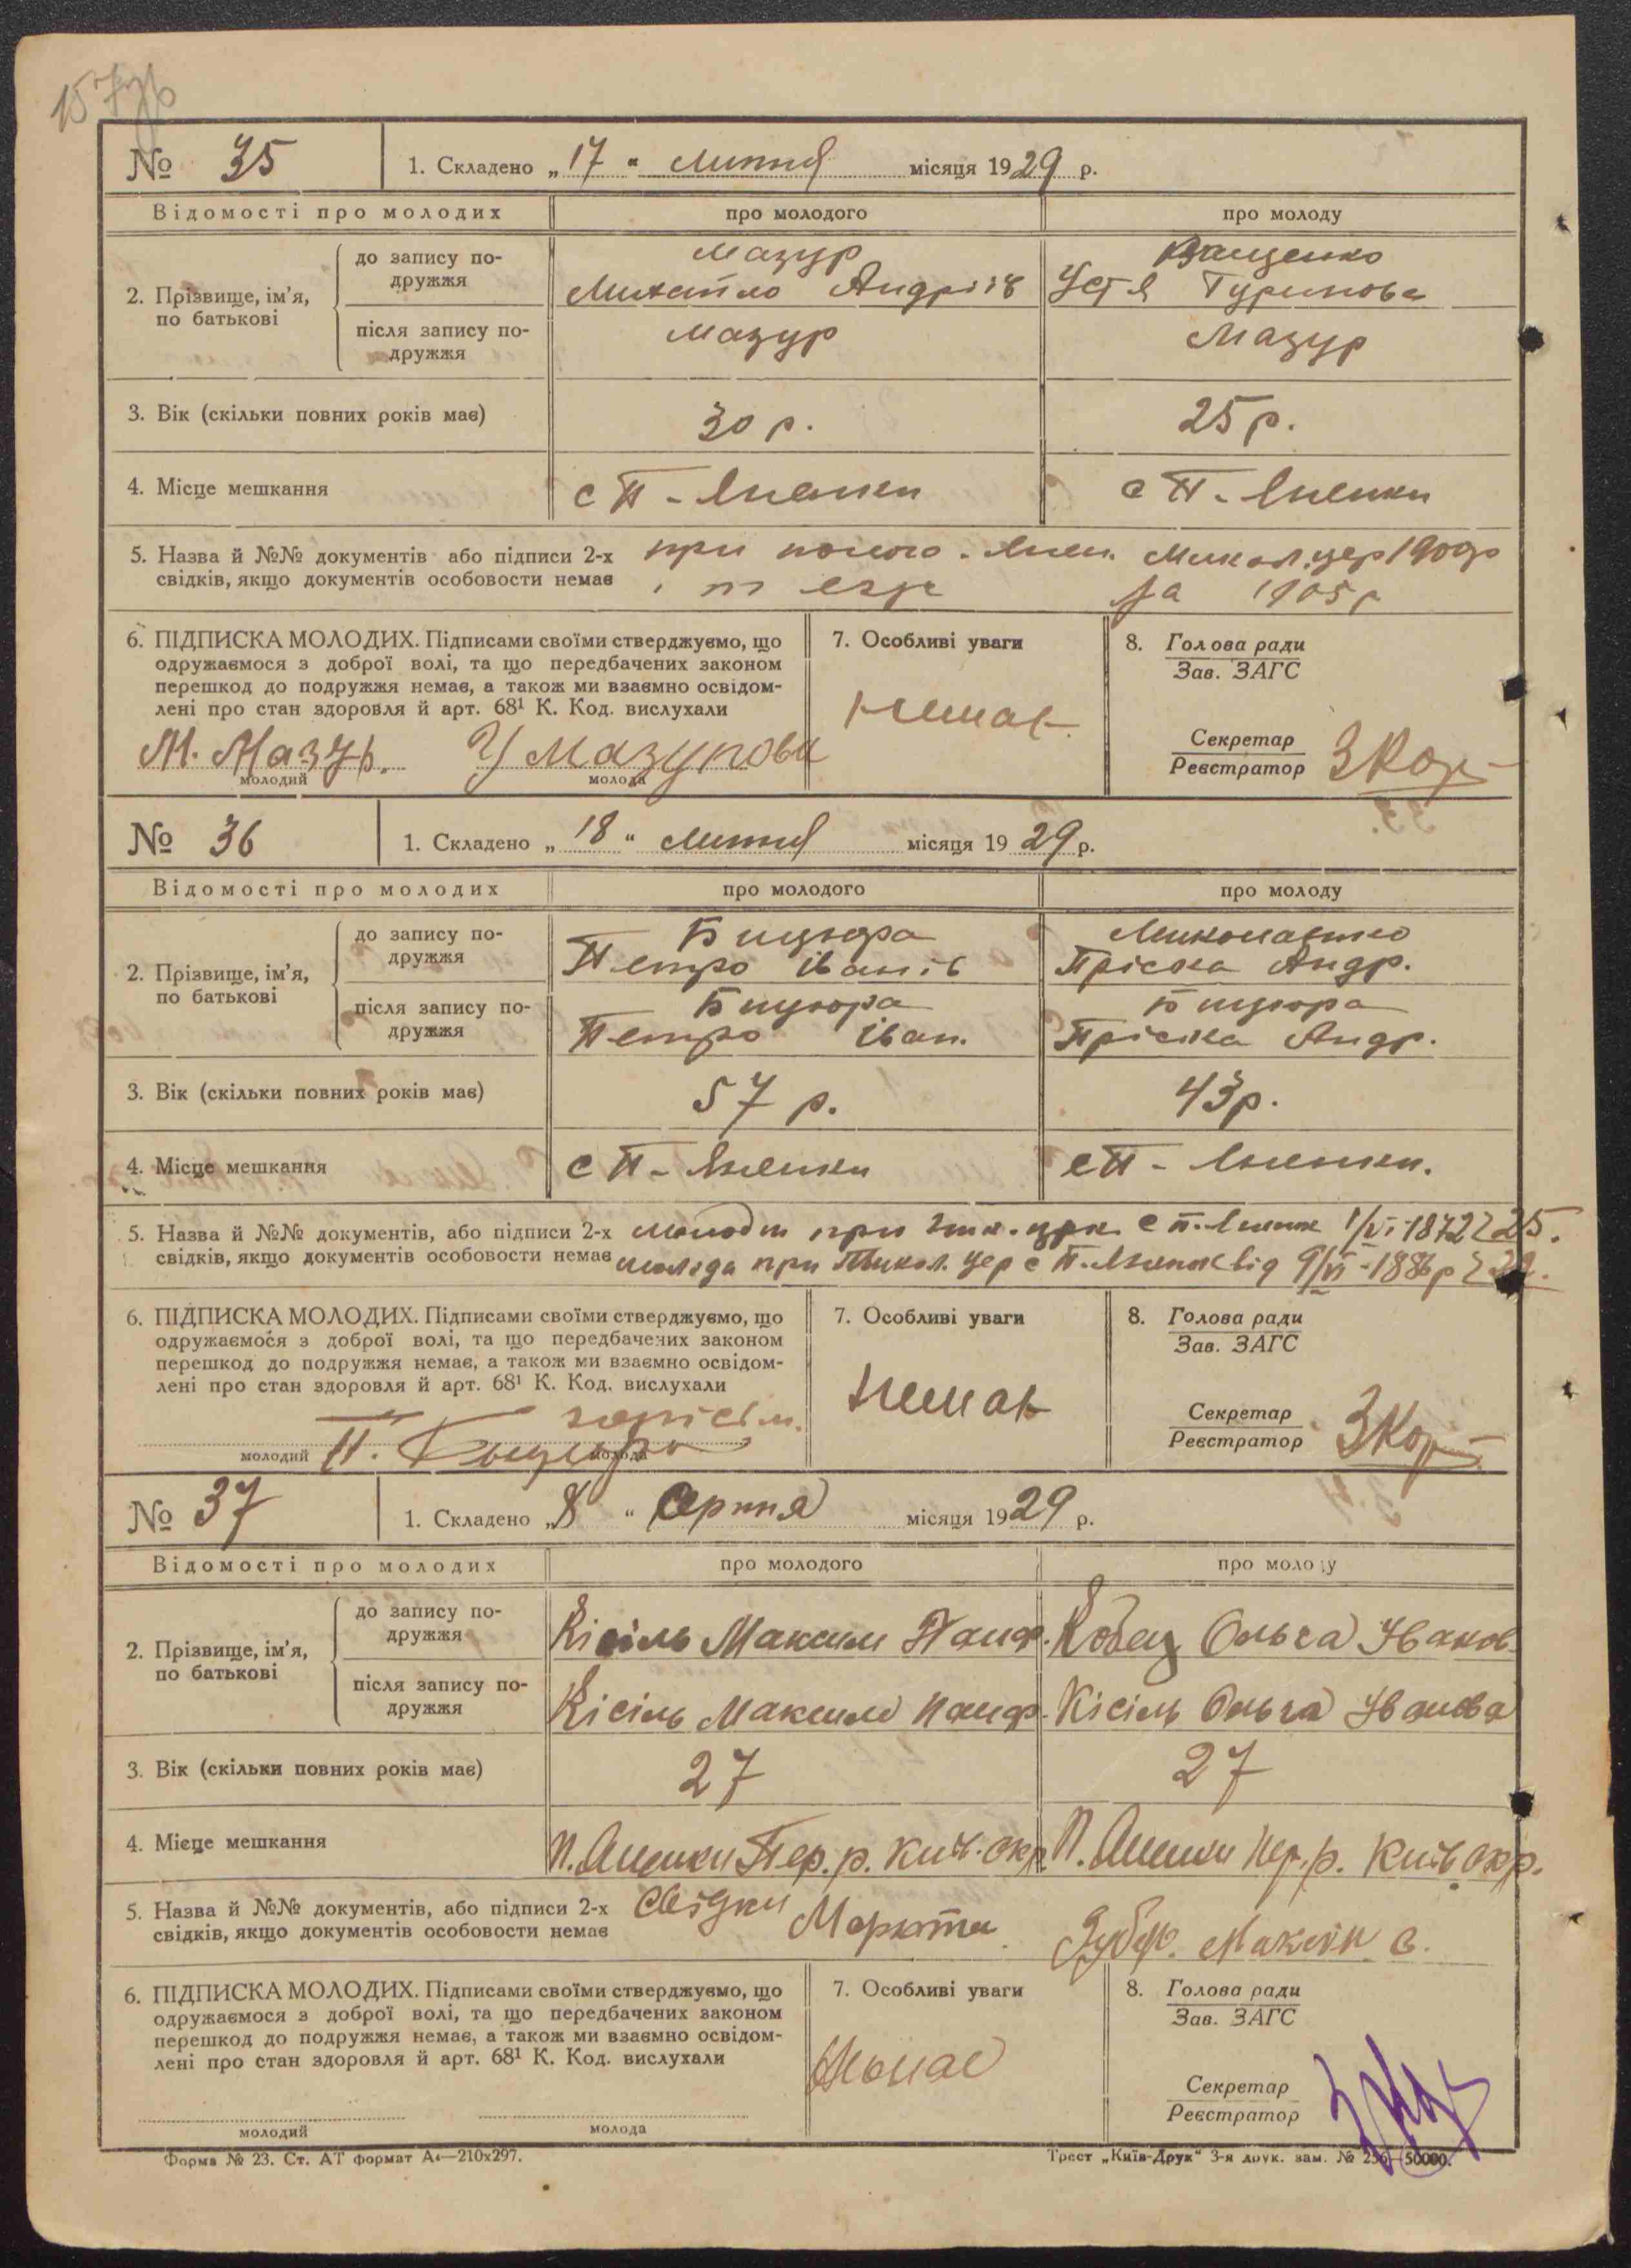 № 35 1. Складено „17“ липня місяця 1929 р.
Відомості про молодих про молодого про молоду
2. Прізвище, ім’я, по батькові
до запису по-
дружжя
Мазур Ващенко
Михайло Андріїв Устя Гурикова
після запису по-
дружжя
Мазур Мазур
3. Вік (скільки повних років має) 30 р. 25 р.
4. Місце мешкання с П-Яненки с П-Яненки
5. Назва й №№ документів або підписи 2-х
свідків, якщо документів особовости немає
при за 1905 р
6. ПІДПИСКА МОЛОДИХ. Підписами своїми стверджуємо, що
одружаємося з доброї волі, та що передбачених законом
перешкод до подружжя немає, а також ми взаємно освідом-
лені про стан здоровля й арт. 68¹ К. Код. вислухали
М. Мазур. У Мазурова
молодий молода
7. Особливі уваги
Немає
8. Голова ради
Зав. ЗАГС
Секретар
Реєстратор
№ 36 1. Складено „18“ липня місяця 1929 р.
Відомості про молодих про молодого про молоду
2. Прізвище, ім’я, по батькові
до запису по-
дружжя
Бицюра
Петро Іванів Пріська Андр.
після запису по-
дружжя
Бицюра Бицюра
Петро Іван. Пріська Андр.
3. Вік (скільки повних років має) 57 р. 43 р.
4. Місце мешкання с П-Яненки с П-Яненки.
5. Назва й №№ документів, або підписи 2-х
свідків, якщо документів особовости немає
молодий при с П. 1/VI-1872
молода при Микол. цер с П. від 9/VI-1886 р
6. ПІДПИСКА МОЛОДИХ. Підписами своїми стверджуємо, що
одружаємося з доброї волі, та що передбачених законом
перешкод до подружжя немає, а також ми взаємно освідом-
лені про стан здоровля й арт. 68¹ К. Код. вислухали
П. Бицюра
молодий молода
7. Особливі уваги
Немає
8. Голова ради
Зав. ЗАГС
Секретар
Реєстратор
№ 37 1. Складено „8“ Серпня місяця 1929 р.
Відомості про молодих про молодого про молоду
2. Прізвище, ім’я, по батькові
до запису по-
дружжя
Кісіль Максим Панф. Кобец Ольга Іванов.
після запису по-
дружжя
Кісіль Максим Панф. Кісіль Ольга Іванова
3. Вік (скільки повних років має) 27 27
4. Місце мешкання П. Яненки Пер. р. Київ. окр. П. Яненки Пер. р. Київ окр.
5. Назва й №№ документів, або підписи 2-х
свідків, якщо документів особовости немає
Свідки
6. ПІДПИСКА МОЛОДИХ. Підписами своїми стверджуємо, що
одружаємося з доброї волі, та що передбачених законом
перешкод до подружжя немає, а також ми взаємно освідом-
лені про стан здоровля й арт. 68¹ К. Код. вислухали
молодий молода
7. Особливі уваги
Немає
8. Голова ради
Зав. ЗАГС
Секретар
Реєстратор
Форма № 23. Ст. АТ формат А4—210x297. Трест „Київ-Друк“ 3-я друк. зам. № 256—50000.